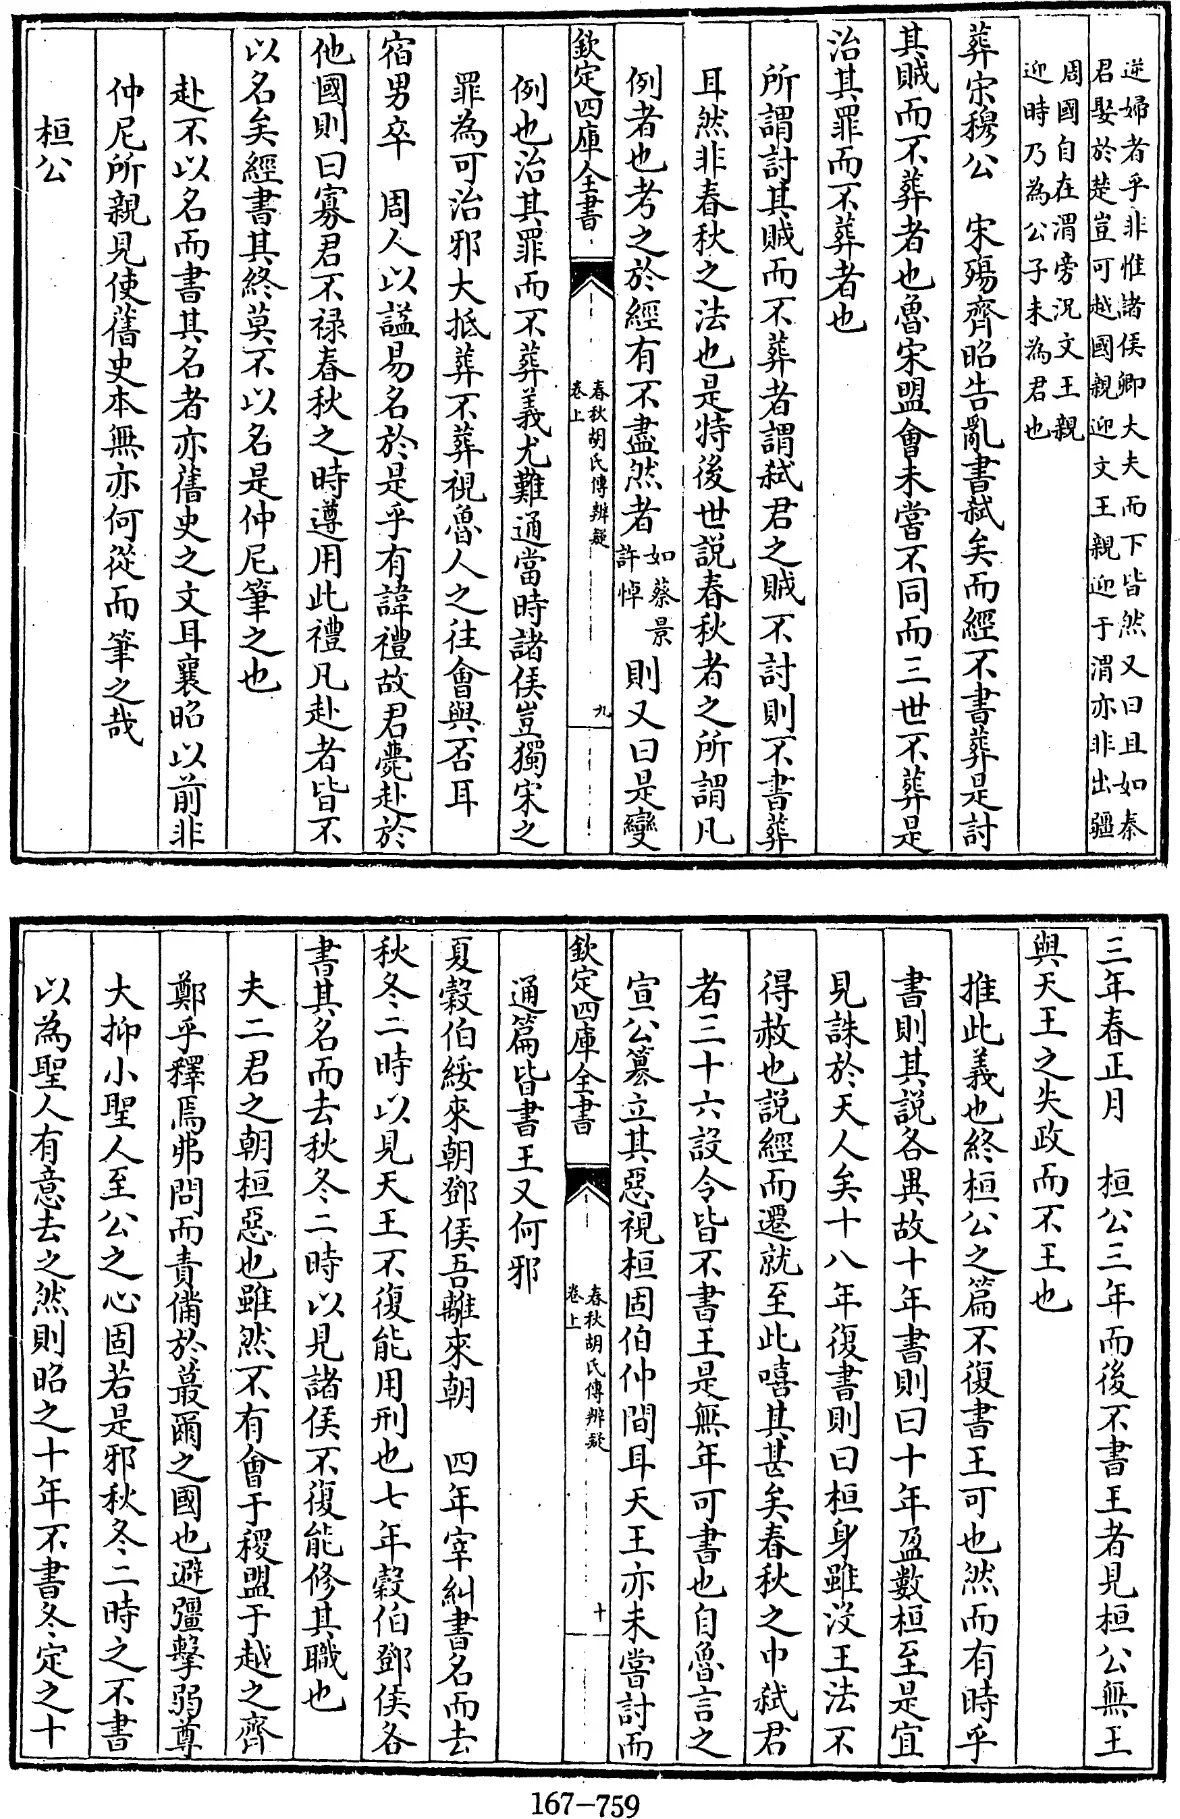 逆婦者乎非惟諸侯卿大夫而下皆然又曰且如秦
君娶於楚豈可越國親迎文王親迎于渭亦非出疆
周國自在渭旁況文王親
迎時乃為公子未為君也
葬宋穆公　宋殤齊昭告亂書弒矣而經不書葬是討
其賊而不葬者也魯宋盟會未嘗不同而三世不葬是
治其罪而不葬者也
所謂討其賊而不葬者謂弒君之賊不討則不書葬
耳然非春秋之法也是特後世說春秋者之所謂凡
例者也考之於經有不盡然者如蔡景許悼則又曰是變
欽定四庫全書
春秋胡氏傳辨疑
卷上
九
例也治其罪而不葬義尤難通當時諸侯豈獨宋之
罪為可治邪大抵葬不葬視魯人之往會與否耳
宿男卒　周人以諡易名於是乎有諱禮故君薨赴於
他國則曰寡君不祿春秋之時遵用此禮凡赴者皆不
以名矣經書其終莫不以名是仲尼筆之也
赴不以名而書其名者亦舊史之文耳襄昭以前非
仲尼所親見使舊史本無亦何從而筆之哉
桓公
三年春正月　桓公三年而後不書王者見桓公無王
與天王之失政而不王也
推此義也終桓公之篇不復書王可也然而有時乎
書則其說各異故十年書則曰十年盈數桓至是宜
見誅於天人矣十八年復書則曰桓身雖沒王法不
得赦也說經而遷就至此嘻其甚矣春秋之中弒君
者三十六設令皆不書王是無年可書也自魯言之
宣公篡立其惡視桓固伯仲間耳天王亦未嘗討而
欽定四庫全書
春秋胡氏傳辨疑
卷上
十
通篇皆書王又何邪
夏穀伯綏來朝鄧侯吾離來朝　四年宰糾書名而去
秋冬二時以見天王不復能用刑也七年穀伯鄧侯各
書其名而去秋冬二時以見諸侯不復能修其職也
夫二君之朝桓惡也雖然不有會于稷盟于越之齊
鄭乎釋焉弗問而責備於蕞爾之國也避彊擊弱尊
大抑小聖人至公之心固若是邪秋冬二時之不書
以為聖人有意去之然則昭之十年不書冬定之十
167-759